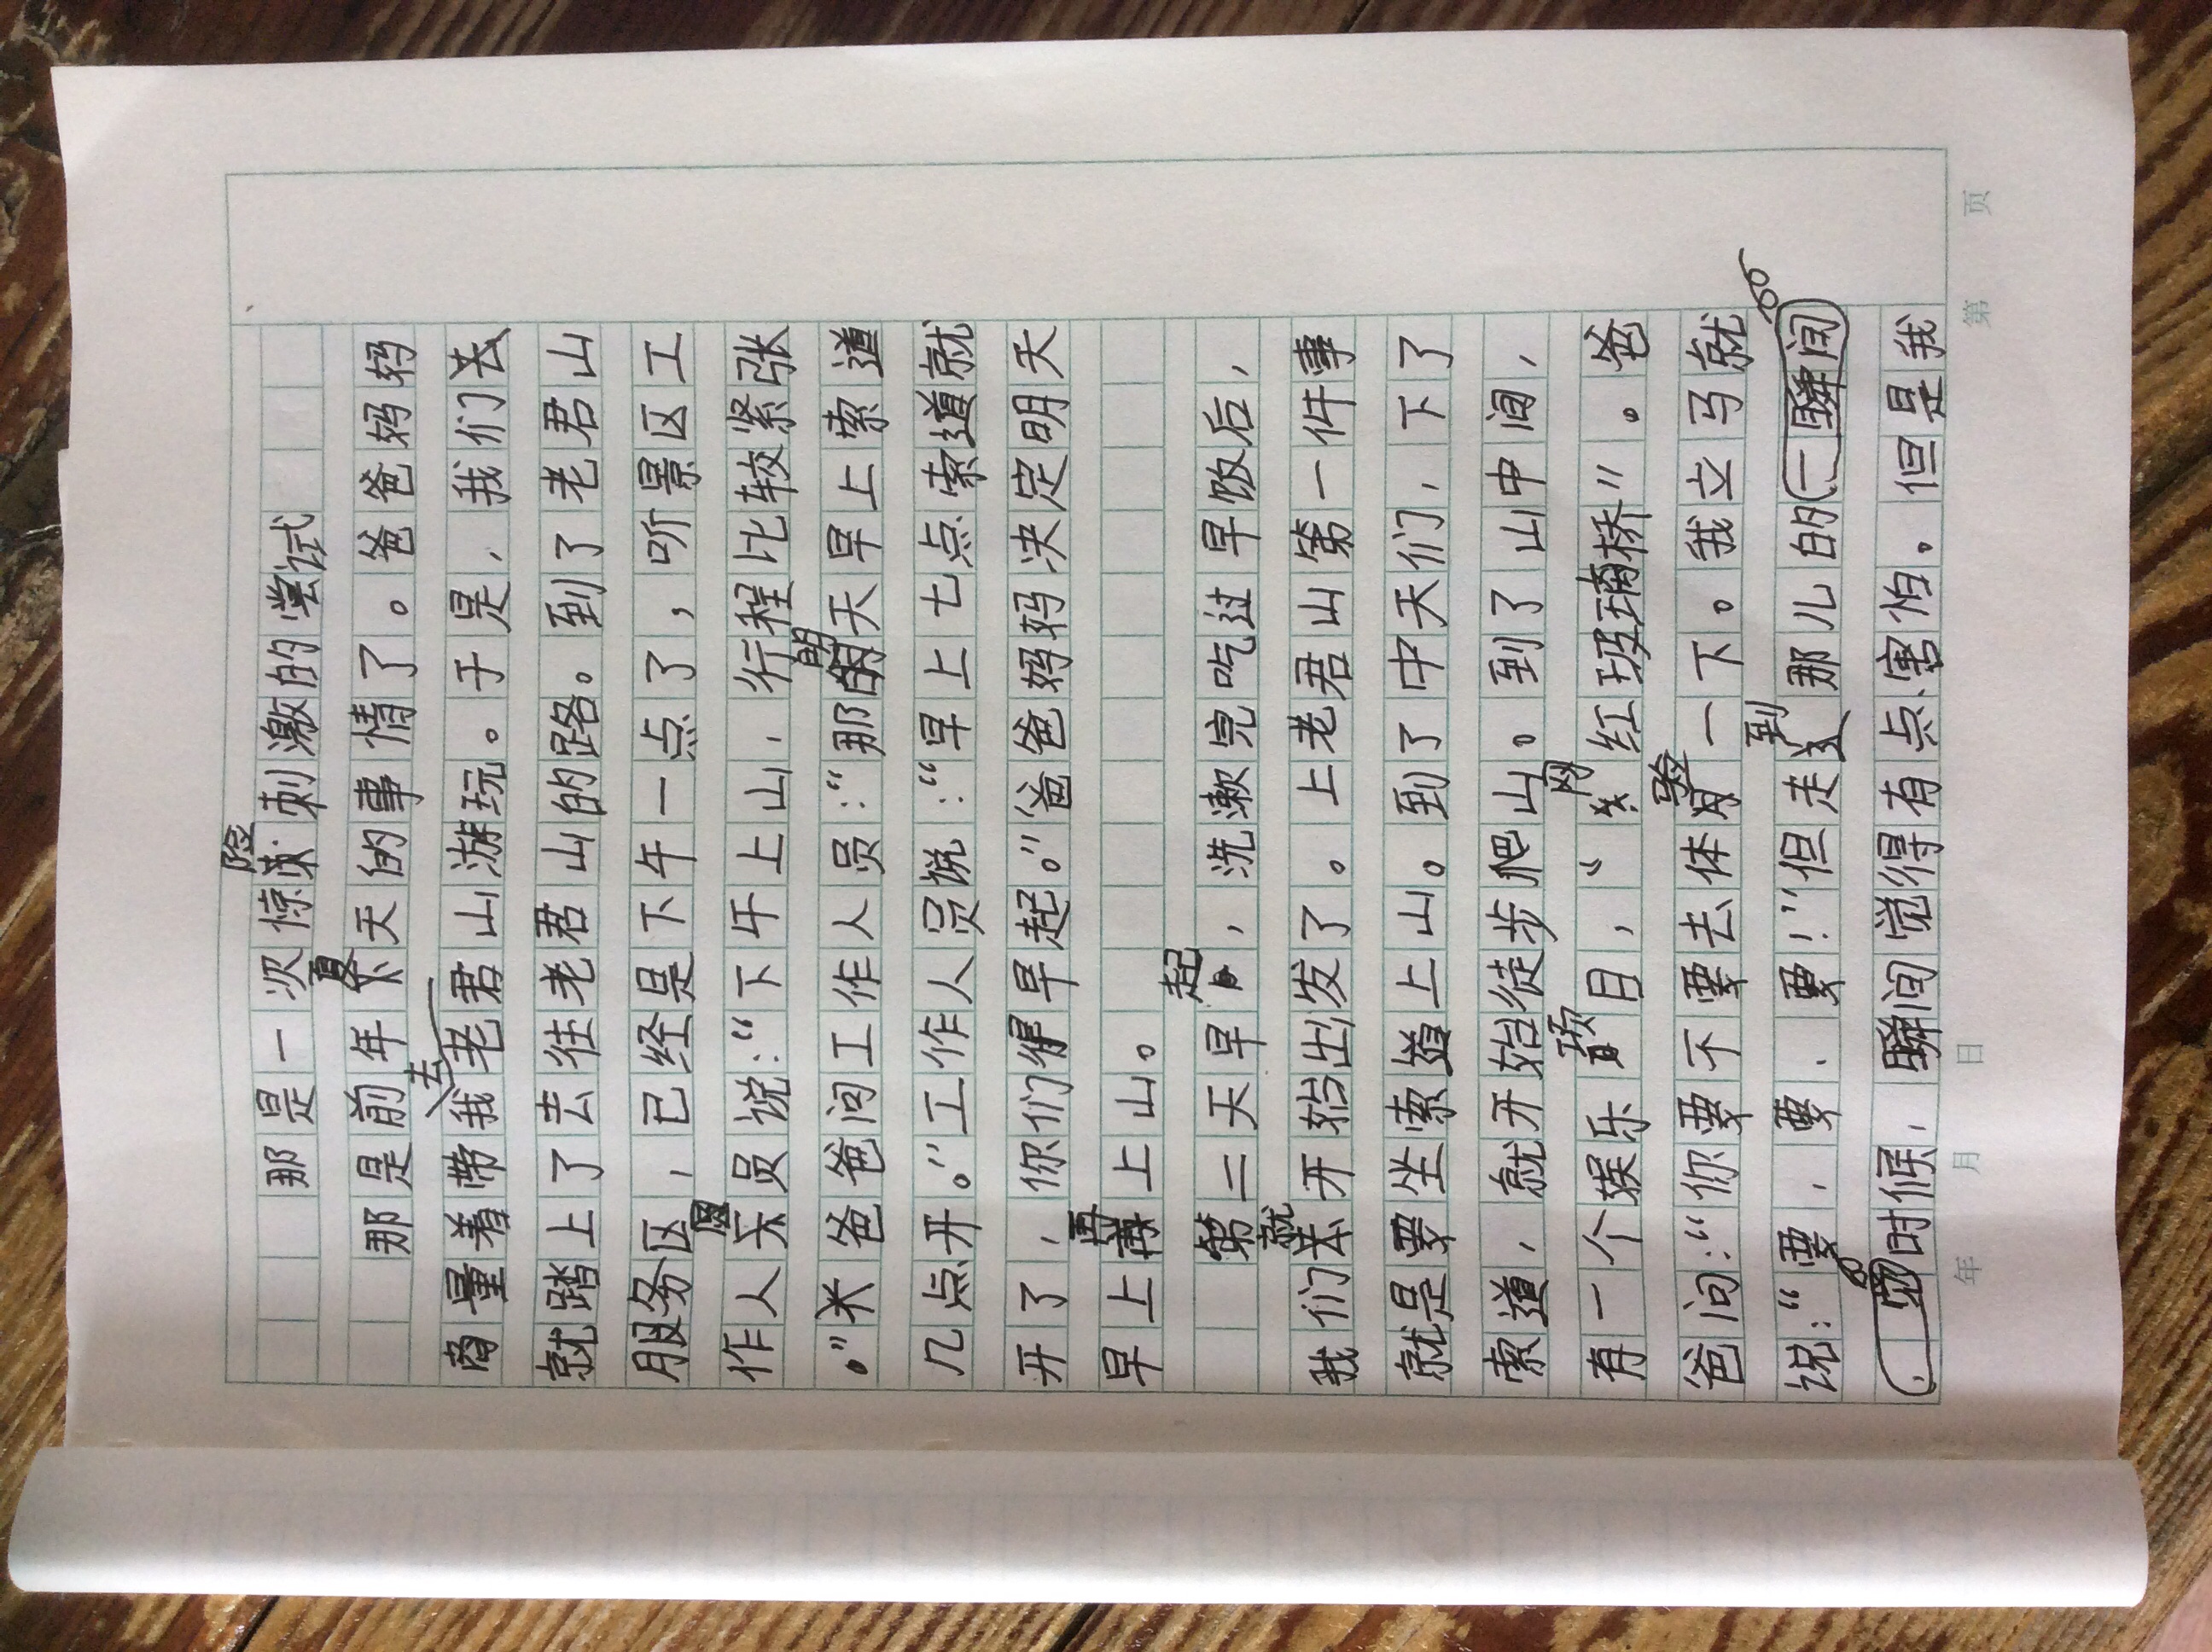 那是一次惊险刺激的尝试
那是前年夏天的事情了。爸爸妈妈
商量着带我去老君山游玩。于是,我们去
就踏上了去往老君山的路。到了老君山
服务区,已经是下午一点了,听景区工
作人员说:“下午上山,行程比较紧张
。”爸爸问工作人员:“那明天早上索道
几点开。”工作人员说:“早上七点索道就
开了,你们得早起。”爸爸妈妈决定明天
早上再上山。
第二天早起,洗漱完吃过早饭后,
我们就开始出发了。上老君山第一件事
就是要坐索道上山。到了中天们,下了
索道,就开始徒步爬山。到了山中间,
有一个娱乐项目,“网红玻璃桥”。爸
爸问:“你要不要去体验一下。我立马就
说:“要,要、要!”但走到那儿的一瞬间
时候,瞬间觉得有点害怕。但是我
年 月 日 第 页